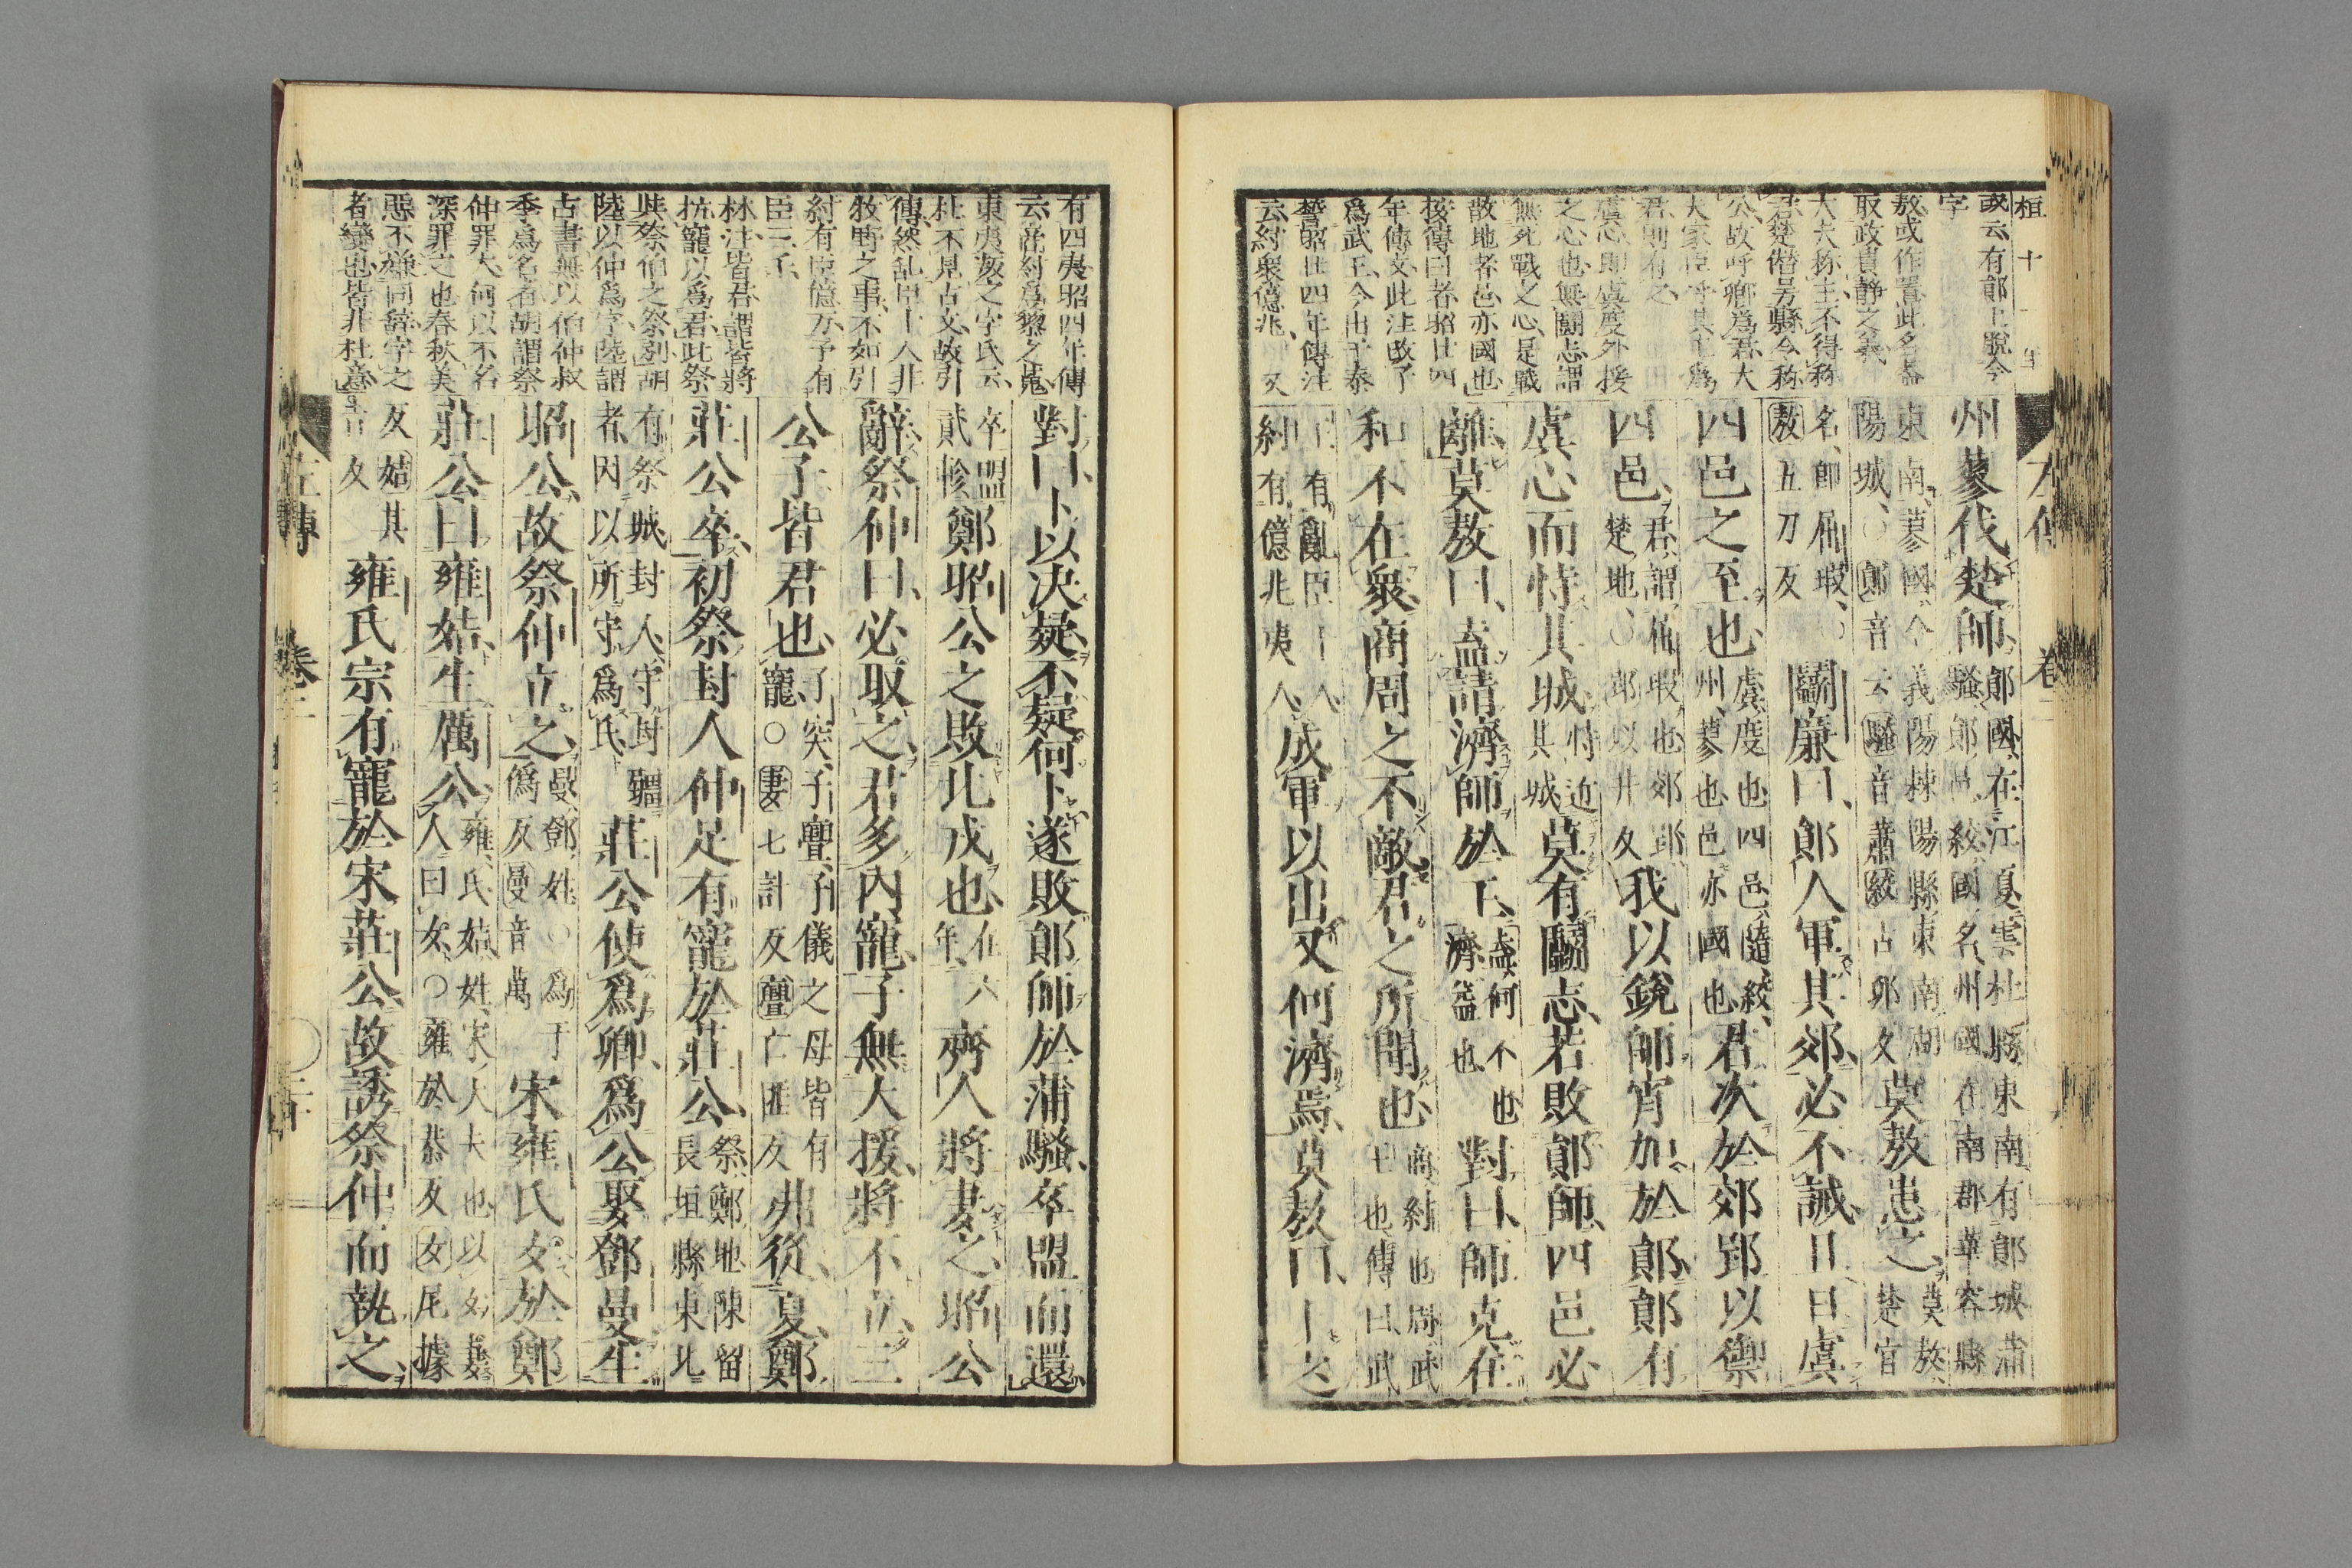 桓十一年
或云有鄖上脱今
字
敖或作䚻此名蓋
取政貴靜之義
大夫称主不得称
君楚僭号縣令称
公故呼卿爲君大
夫家臣呼其主爲
君則有之
虞心即虞度外援
之心也無鬭志謂
無死戰之心是戰
散地者邑亦國也
按傳曰者昭廿四
年傳文此注故了
爲武王今出于泰
誓昭廿四年傳注
云紂衆億兆又
左傳 卷二
州蓼伐楚師鄖國在江夏雲杜縣東南有鄖城蒲
騷鄖邑絞國名州國在南郡華容縣
東南蓼國今義陽棘陽縣東南湖
陽城〇鄖音云騷音蕭絞古卯反莫敖患之莫敖楚官
名即屈瑕〇
敖五刀反鬭廉曰鄖人軍其郊必不誡且日虞
四邑之至也虞度也四邑隨絞
州蓼也邑亦國也君次於郊郢以禦
四邑君謂屈瑕也郊郢
楚地〇郢以井反我以銳師宵加於鄖鄖有
虞心而恃其城恃近
其城莫有鬭志若敗鄖師四邑必
離莫敖曰盍請濟師於王盍何不也
濟益也對曰師克在
和不在衆商周之不敵君之所聞也商紂也周武
王也傳曰武
王有亂臣十人
紂有億兆夷人成軍以出又何濟焉莫敖曰卜之
有四夷昭四年傳
云商紂爲黎之蒐
東夷叛之字氏云
杜不見古文故引
傳然乱臣十人非
牧野之事不如引
紂有臣億万予有
臣三千
林注皆君謂皆將
抗寵以爲君此祭
與祭伯之祭別胡
陸以仲爲字陸謂
古書無以伯仲叔
季爲名者胡謂祭
仲罪大何以不名
深罪之也春秋美
惡不嫌同辭字之
者變也皆非杜意
對曰卜以決疑不疑何卜遂敗鄖師於蒲騷卒盟而還
卒盟
貳軫鄭昭公之敗北戎也在六
年齊人將妻之昭公
辭祭仲曰必取之君多內寵子無大援將不立三
公子皆君也子突子亹子儀之母皆有
寵〇妻七計反亹亡匪反弗從夏鄭
莊公卒初祭封人仲足有寵於莊公祭鄭地陳留
長垣縣東北
有祭城封人守封疆
者因以所守爲氏莊公使爲卿爲公娶鄧曼生
昭公故祭仲立之曼鄧姓〇爲于
僞反曼音萬宋雍氏女於鄭
莊公曰雍姞生厲公雍氏姞姓宋大夫也以女妻
人曰女〇雍於恭反女尼據
反姞其
吉反雍氏宗有寵於宋莊公故誘祭仲而執之
左傳 卷二 〇二十